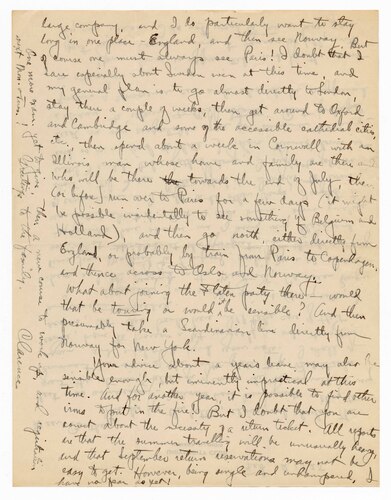 large company, and I do particularly want to stay
long in one place - England, and then see Norway. But
of course one must always see Paris! I doubt that I
care especially about Sweden at this time, and
my general plan is to go almost directly to London,
stay there a couple of weeks, then get around to Oxford
and Cambridge and some of the accessible cathedral cities,
etc., then spend about a week in Cornwall with an
Illinois man whose home and family are there and
who will be there towards the end of July, the
(or before) run over to Paris for a few days (it might
be possible incidentally to see something of Belgium and
Holland) and then go north, either directly from
England, or probably by train from Paris to Copenhagen,
and thence across to Oslo and Norway.
What about joining the Flaten party there - would
that be touring or would it be sensible? And then
presumably take a Scandinavian line directly from
Norway for New York.
Your advice about a year's leave may also be
sensible enough, but eminently impractical at this
time. And for another year, it is possible to find other
irons to put in the fire! But I doubt that you are
correct about the necessity of a return ticket. All reports
is that the summer travelling will be unusually heavy,
and that September return reservations may not be
easy to get. However being single and unhampered, I
have no fear as yet!
One more exam yet to give, then a new course to work up, and registration
next Mon - Tues. Greetings to the family.
Clarence